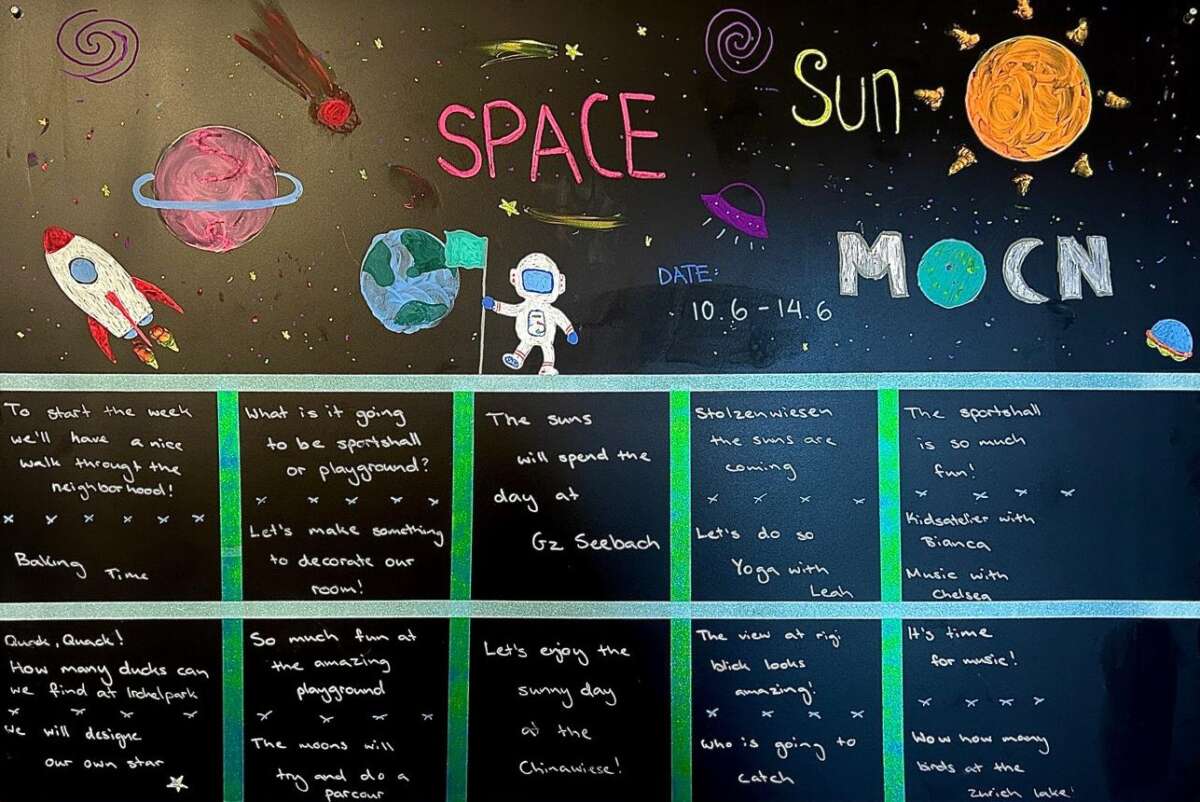 SPACE
Sun
MOCN
DATE:
10.6 - 14.6
To start the week
we'll have a nice
walk throught the
neighborhood!
Baking Time
What is it going
to be sportshall
or playground?
Let's make something
to decorate our
room!
The suns
will spend the
day at
Gz Seebach
Stolzenwiesen
the suns are
coming
Let's do so
Yoga with
Leah
The sportshall
is so much
fun!
Kidsatelier with
Bianca
Music with
Chelsea
Quack, Quack!
How many ducks can
we find at Irchelpark
We will designe
our own star
So much fun at
the amazing
playground
The moons will
try and do a
parcour
Let's enjoy the
sunny day
at the
Chinawiese!
The view at rigi
blick looks
amazing!
Who is going to
catch
It's time
for music!
Wow how many
birds at the
Zurich lake!